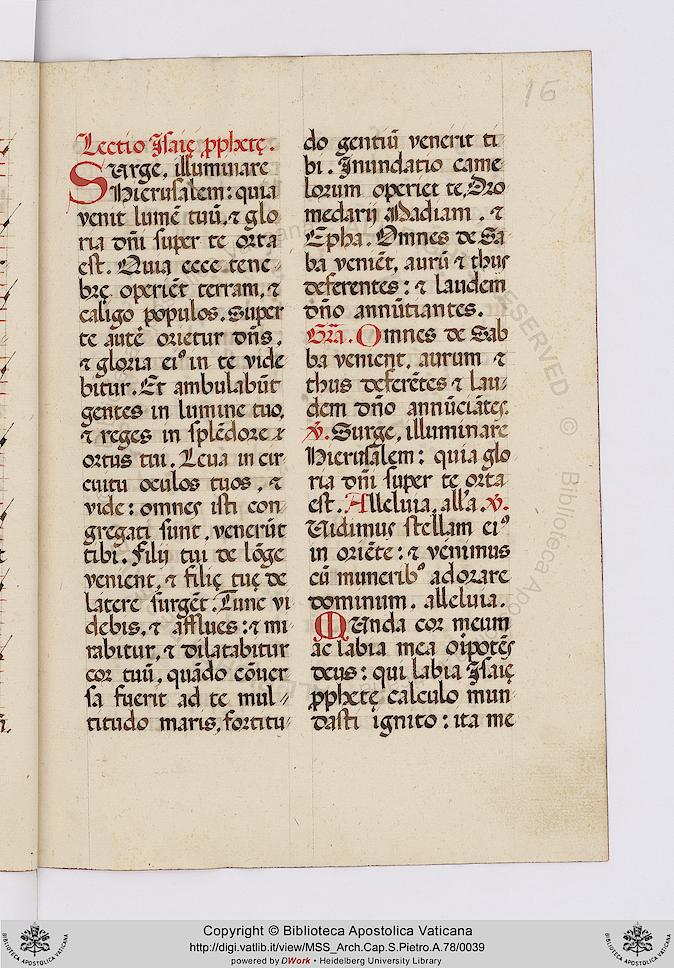 16
Lectio Isaię pphetę.
SUrge, illuminare
Hierusalem: quia
venit lumē tuū, ⁊ glo
ria dn̄i super te orta
est. Quia ecce tene-
brę operiēt terram, ⁊
caligo populos. Super
te autē orietur dn̄s,
⁊ gloria eiꝰ in te vide
bitur. Et ambulabūt
gentes in lumine tuo,
⁊ reges in splēdore
ortus tui. Leva in cir
cuitu oculos tuos, ⁊
vide: omnes isti con-
gregati sunt, venerūt
tibi. Filij tui de lōge
venient, ⁊ filię tuę de
latere surgēt. Tunc vi
debis, ⁊ afflues: ⁊ mi
rabitur, ⁊ dilatabitur
cor tuū, quādo cōver
sa fuerit ad te mul-
titudo maris, fortitu-
do gentiū venerit ti
bi. Inundatio came-
lorum operiet te, Dro
medarij Madiam, ⁊
Epha. Omnes de Sa-
ba veniēt, aurū ⁊ thus
deferentes: ⁊ laudem
dn̄o annūtiantes.
Gra̅. Omnes de Sab
ba venient, aurum ⁊
thus deferētes ⁊ lau-
dem dn̄o annūciātes.
℣. Surge, illuminare
Hierusalem: quia glo
ria dn̄i super te orta
est. Alleluia, all'a. ℣.
Vidimus stellam eiꝰ
in oriēte: ⁊ venimus
cū muneribꝰ adorare
dominum. alleluia.
MUnda cor meum
ac labia mea oīpotēs
deus: qui labia Isaię
pphetę calculo mun-
dasti ignito: ita me
RESERVED © Biblioteca Apo
Copyright © Biblioteca Apostolica Vaticana
http://digi.vatlib.it/view/MSS_Arch.Cap.S.Pietro.A.78/0039
powered by DWork • Heidelberg University Library
BIBLIOTECA APOSTOLICA VATICANA
BIBLIOTECA APOSTOLICA VATICANA